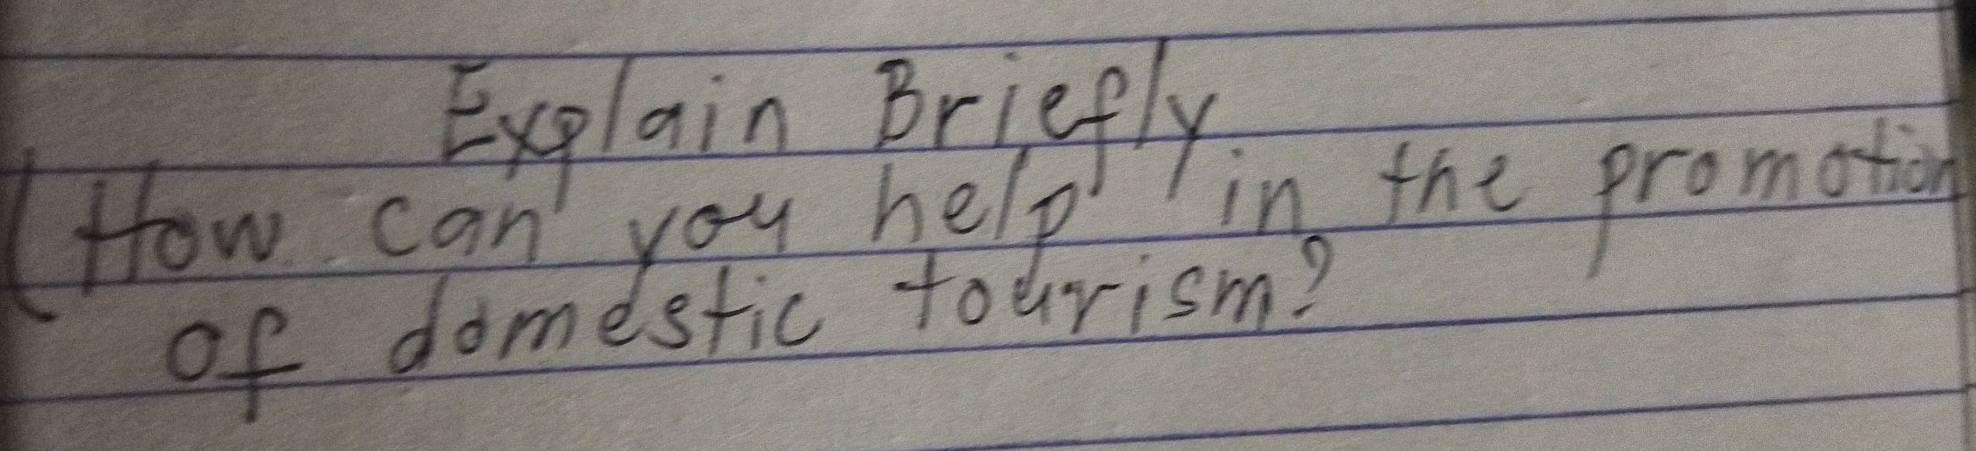 Explain Briefly
(How can you help in the promotion
of domestic tourism?